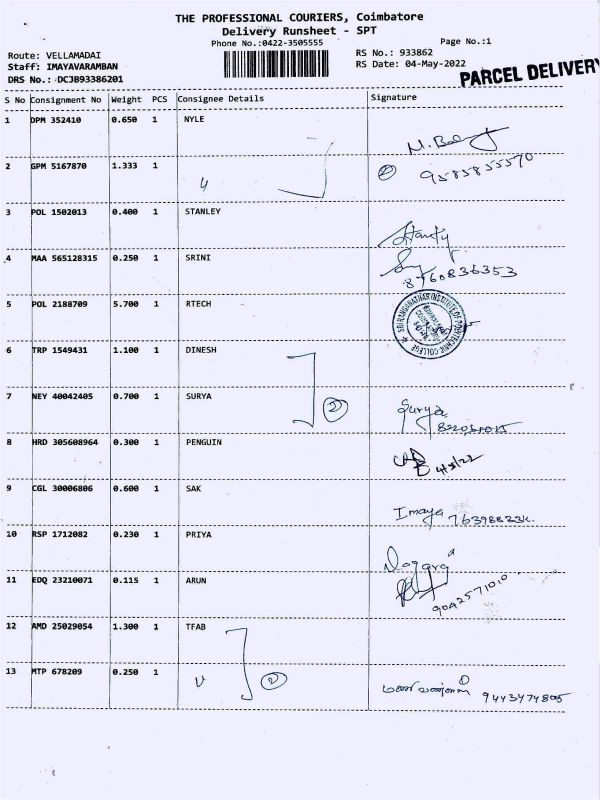 THE PROFESSIONAL COURIERS, Coimbatore
Delivery Runsheet - SPT
Phone No.:0422-3505555
Page No.:1
Route: VELLAMADAI
Staff: IMAYAVARAMBAN
DRS No.: DCJB93386201
RS No.: 933862
RS Date: 04-May-2022
PARCEL DELIVERY
S No Consignment No Weight PCS Consignee Details Signature
1 DPM 352410 0.650 1 NYLE
2 GPM 5167870 1.333 1
2 9585855570
3 POL 1502013 0.400 1 STANLEY
4 MAA 565128315 0.250 1 SRINI
8760836353
5 POL 2188709 5.700 1 RTECH
6 TRP 1549431 1.100 1 DINESH
7 NEY 40042405 0.700 1 SURYA 2 Surya
8 HRD 305608964 0.300 1 PENGUIN 4/5/22
9 CGL 30006806 0.600 1 SAK Imaya
10 RSP 1712082 0.230 1 PRIYA
11 EDQ 23210071 0.115 1 ARUN
9042571010
12 AMD 25029054 1.300 1 TFAB
13 MTP 678209 0.250 1 2 9443474805